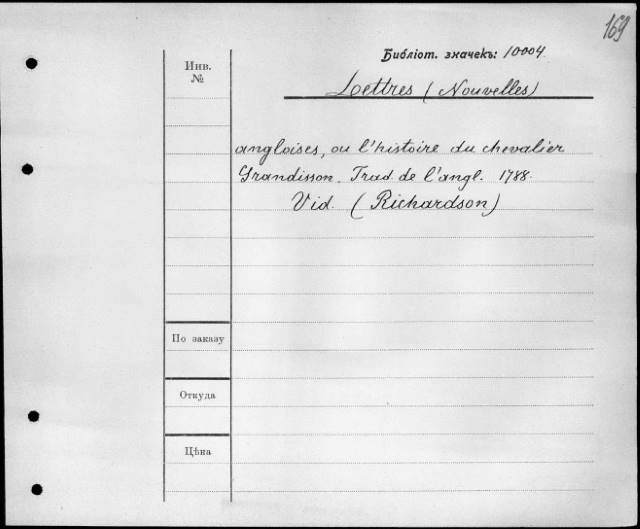 169
Библіот. значекъ: 10004
Инв.
№
Lettres (Nouvelles)
angloises, ou l'histoire du chevalier
Grandisson. Trad. de l'angl. 1788.
Vid. (Richardson)
По заказу
Откуда
Цѣна